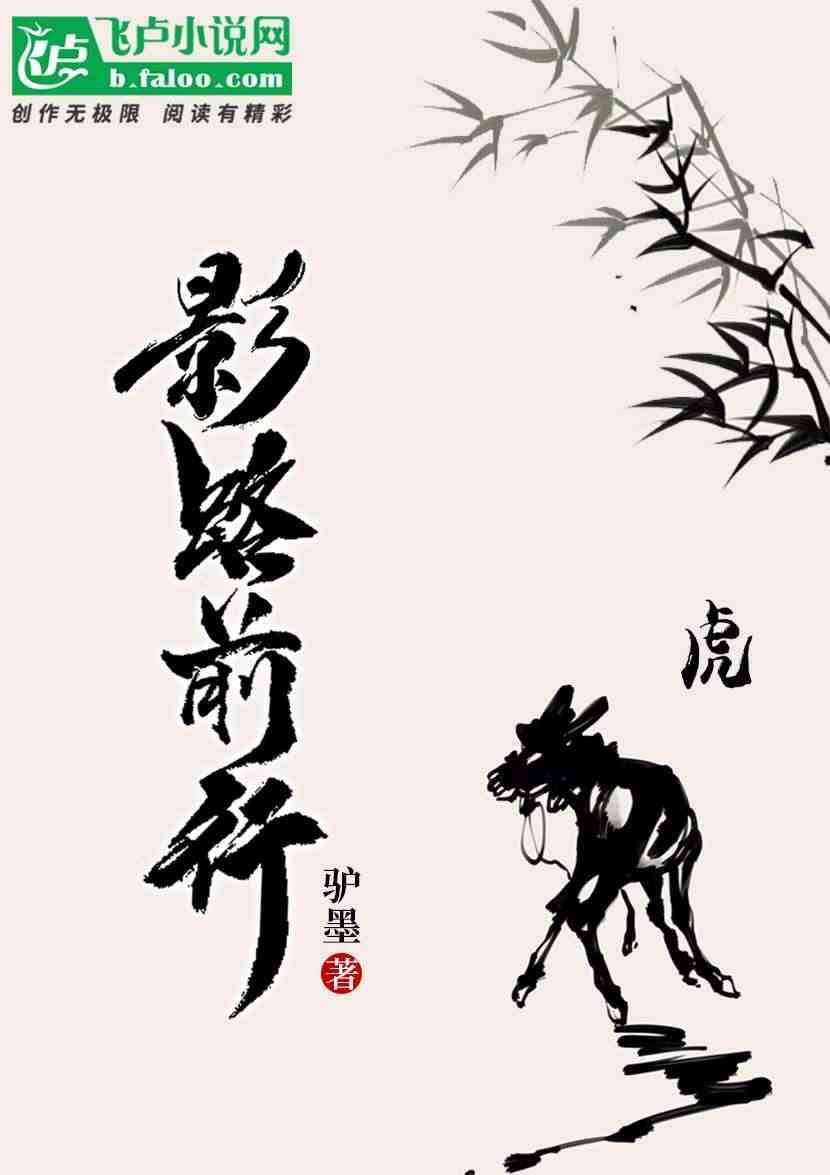 飞卢小说网
b.faloo.com
创作无极限 阅读有精彩
影路前行
虎
驴墨
著